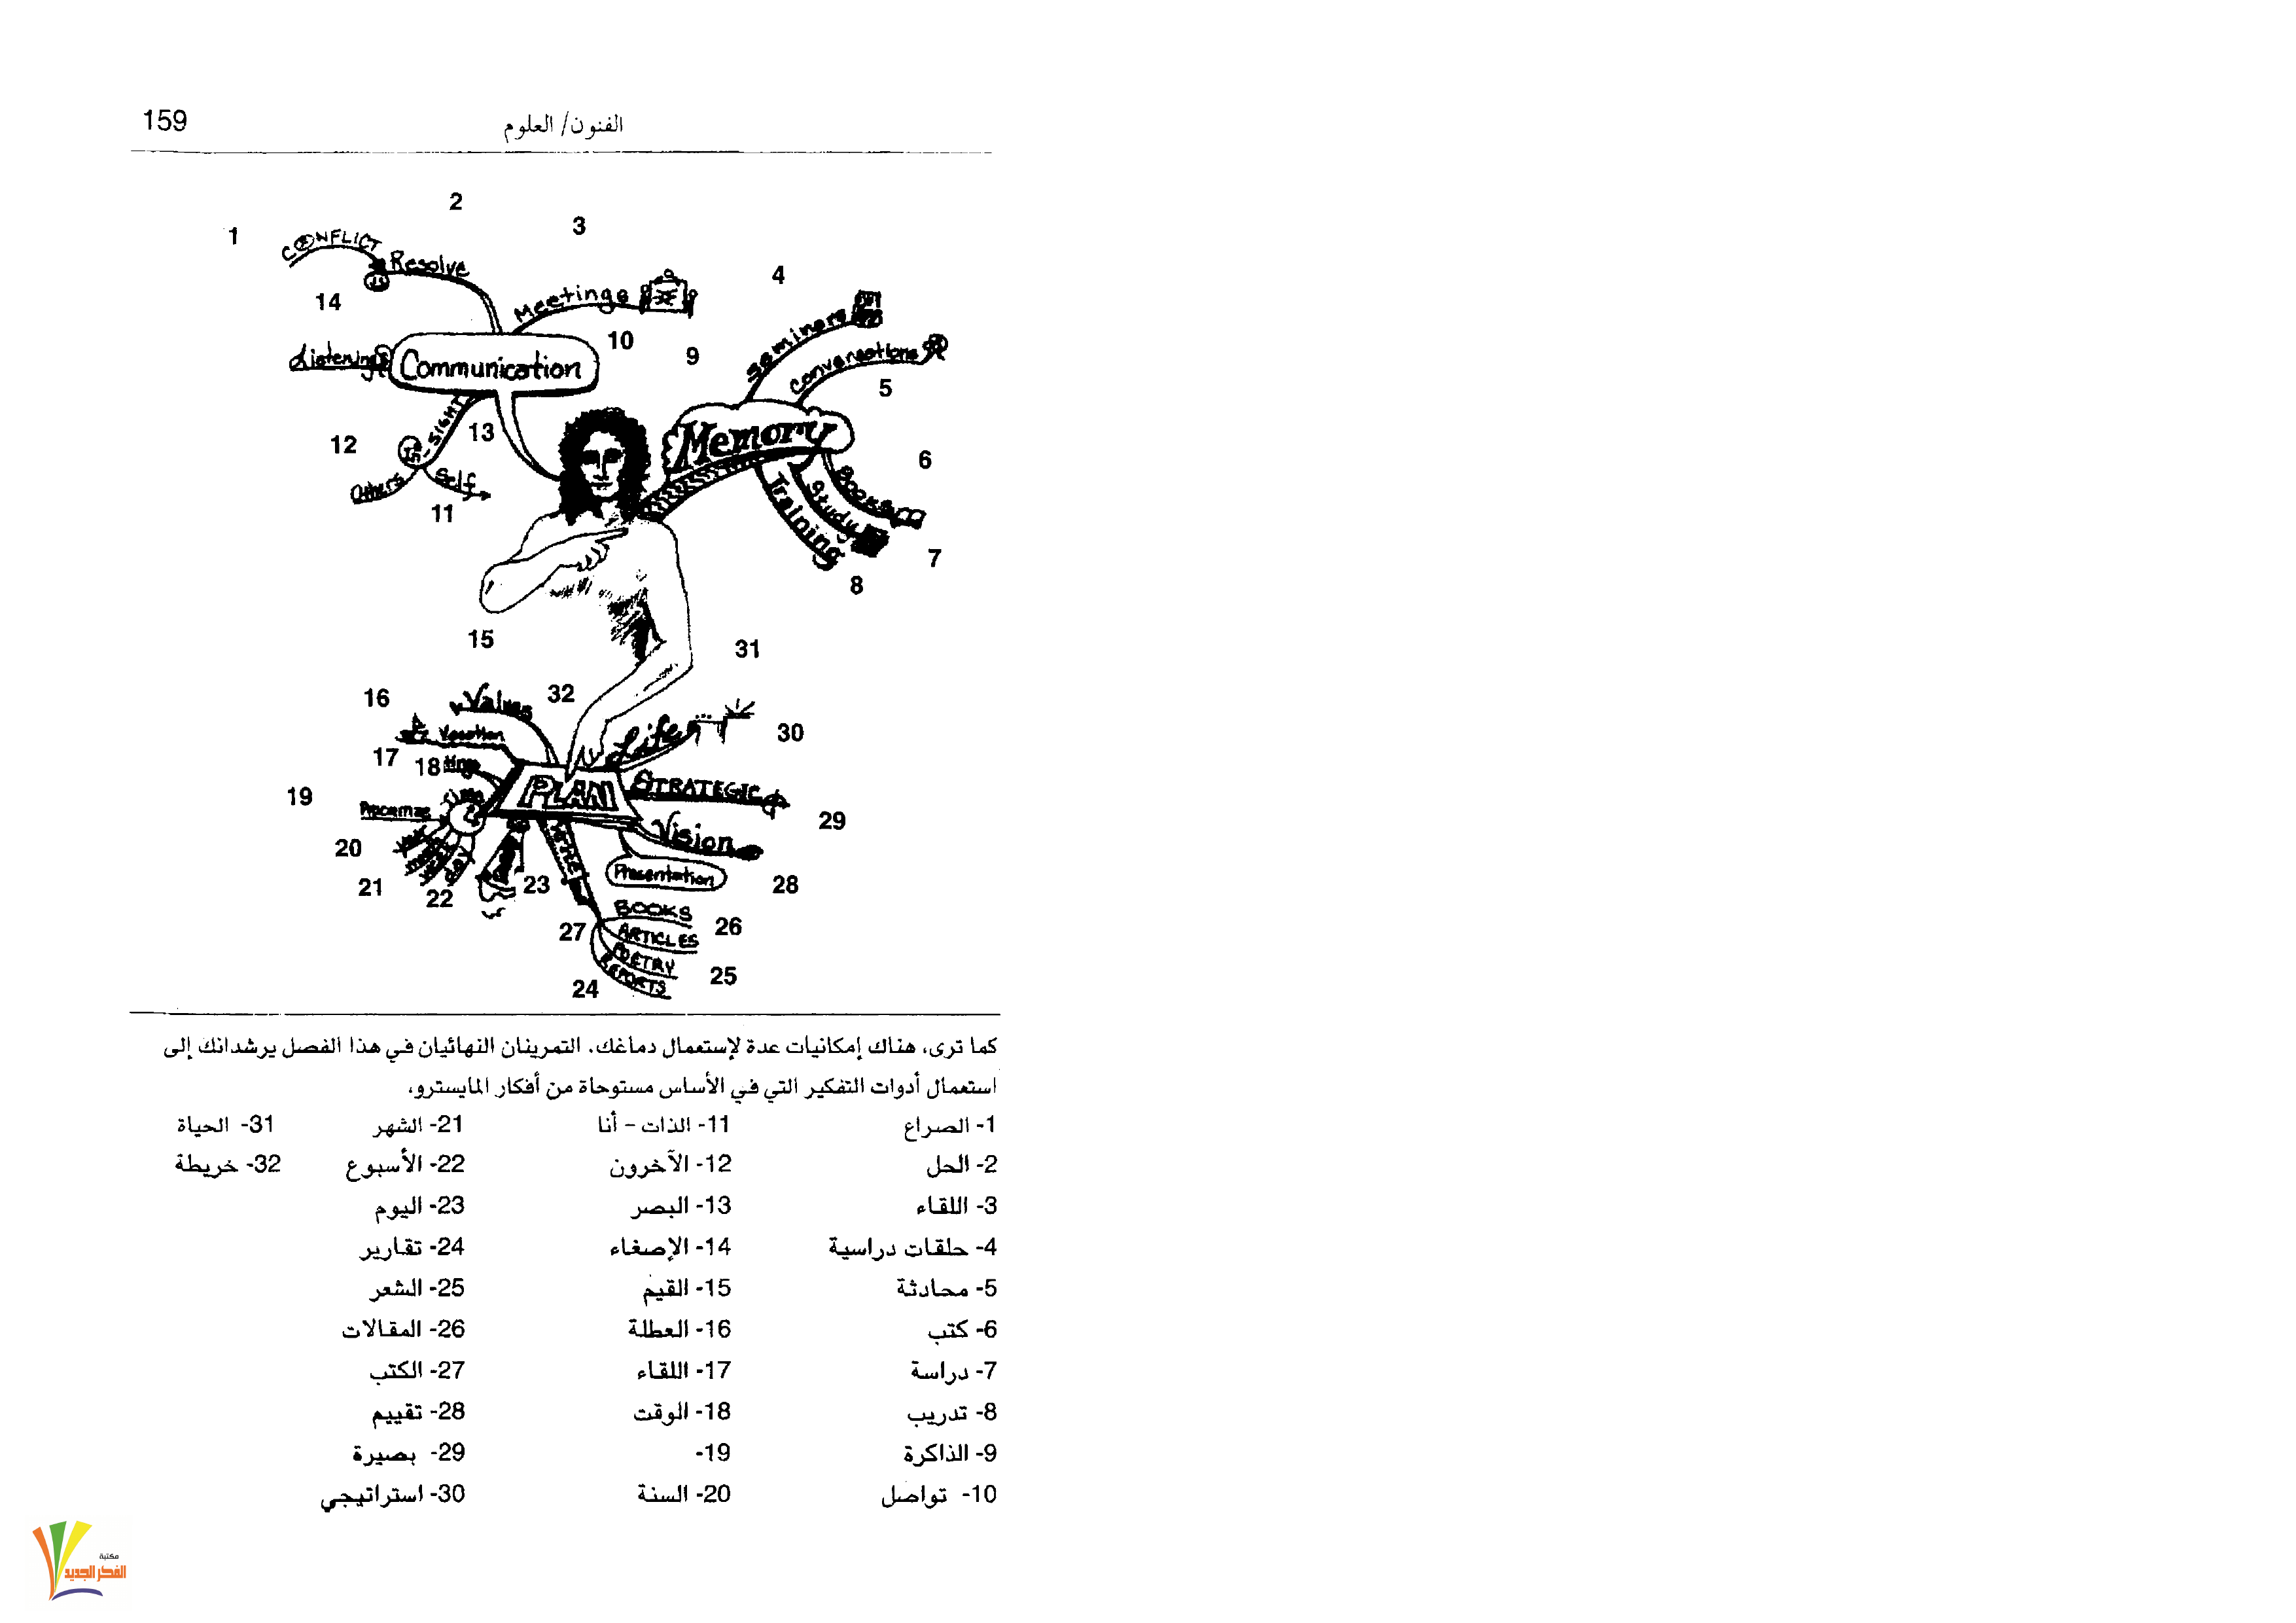 الفنون/ العلوم
159
1
2
3
4
CONFLICT
Resolve
14
Meetings
10
9
Seminers
Conversations
5
Listening
Communication
12
13
SIGHT
In-
Others
Self
11
Memory
6
Books
Study
Training
7
8
15
31
16
Values
32
Life
30
17
Vacation
18
PLAN
STRATEGIC
29
19
Vision
20
Presentation
28
21
22
23
27
BOOKS
26
ARTICLES
POETRY
25
REPORTS
24
كما ترى، هناك إمكانيات عدة لإستعمال دماغك. التمرينان النهائيان في هذا الفصل يرشدانك إلى
استعمال أدوات التفكير التي في الأساس مستوحاة من أفكار المايسترو،
1- الصراع
2- الحل
3- اللقاء
4- حلقات دراسية
5- محادثة
6- كتب
7- دراسة
8- تدريب
9- الذاكرة
10- تواصل
11- الذات – أنا
12- الآخرون
13- البصر
14- الإصغاء
15- القيم
16- العطلة
17- اللقاء
18- الوقت
19-
20- السنة
21- الشهر
22- الأسبوع
23- اليوم
24- تقارير
25- الشعر
26- المقالات
27- الكتب
28- تقييم
29- بصيرة
30- استراتيجي
31- الحياة
32- خريطة
مكتبة
الفكر الجديد